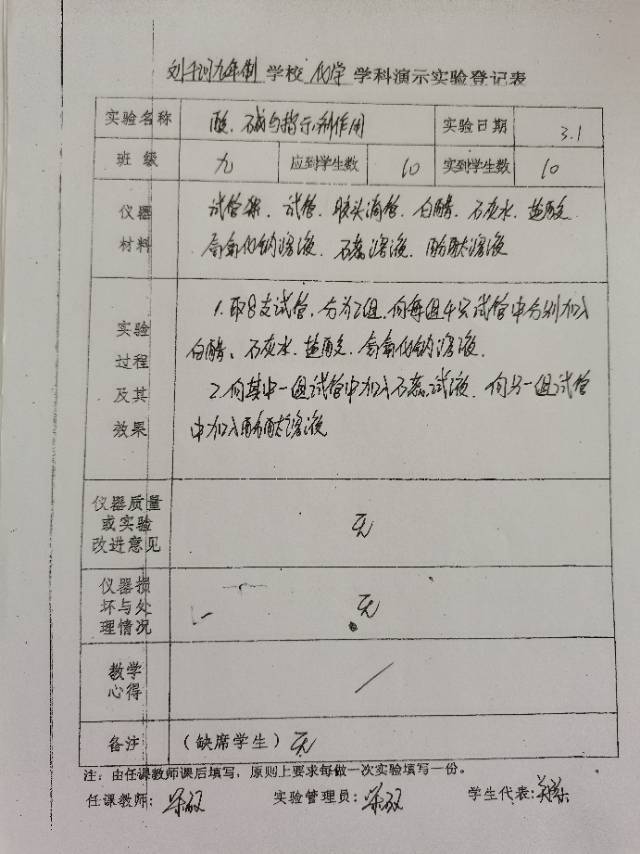 九年制 学校 化学 学科演示实验登记表
实验名称 酸、碱与指示剂作用 实验日期 3.1
班级 九 应到学生数 10 实到学生数 10
仪器材料 试管架、试管、胶头滴管、白醋、石灰水、盐酸
氢氧化钠溶液、石蕊溶液、酚酞溶液
实验过程及其效果 1.取8支试管,分为2组,向每组4只试管中分别加入
白醋、石灰水、盐酸、氢氧化钠溶液.
2.向其中一组试管中加入石蕊试液.向另一组试管
中加入酚酞溶液
仪器质量或实验改进意见 无
仪器损坏与处理情况 无
教学心得 /
备注 (缺席学生) 无
注:由任课教师课后填写,原则上要求每做一次实验填写一份。
任课教师: 实验管理员: 学生代表: